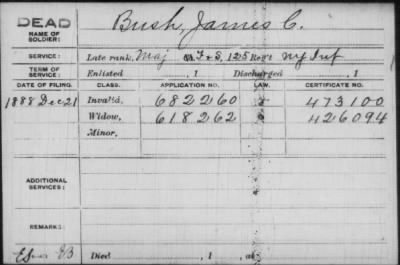 DEAD Bush, James C.
NAME OF SOLDIER:
SERVICE: Late rank, Maj F & S, 125 Reg't NY Inf
TERM OF SERVICE: Enlisted , 1 Discharged , 1
DATE OF FILING. CLASS. APPLICATION NO. LAW. CERTIFICATE NO.
1888 Dec 21 Invalid, 682260 473100
Widow, 618262 426094
Minor,
ADDITIONAL SERVICES:
REMARKS:
Died , 1 , at